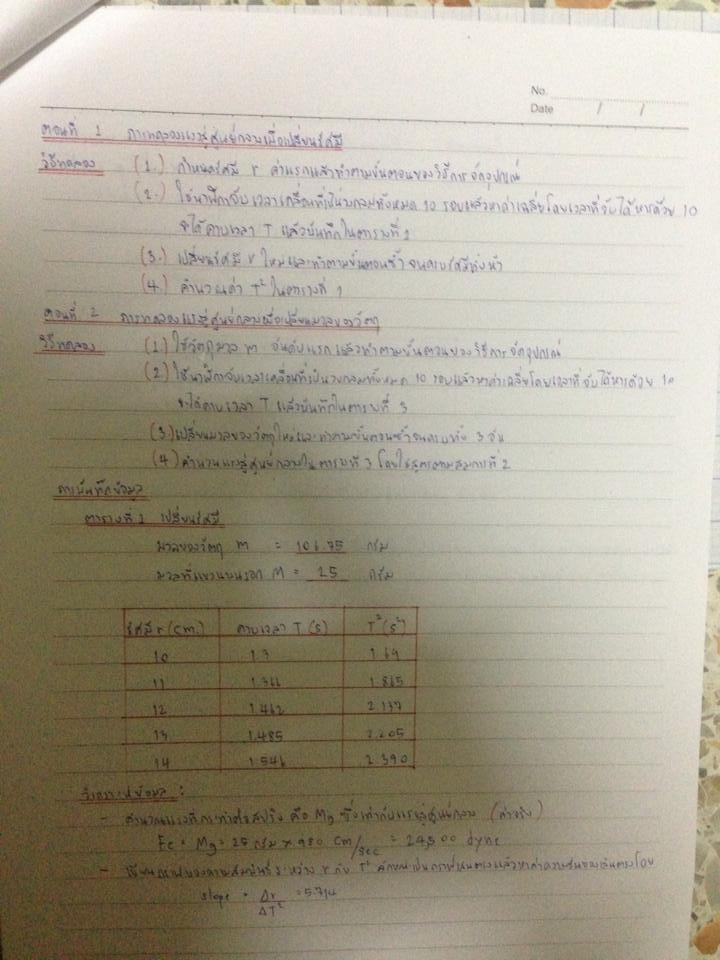 No.
Date / /
ตอนที่ 1 การทดลองแรงสู่ศูนย์กลางเมื่อเปลี่ยนรัศมี
วิธีทดลอง (1.) กำหนดรัศมี r ค่าแรกแล้วทำตามขั้นตอนของวิธีการจัดอุปกรณ์
(2.) ใช้นาฬิกาจับเวลาเคลื่อนที่เป็นวงกลมทั้งหมด 10 รอบแล้วหาค่าเฉลี่ยโดยเวลาที่จับได้หารด้วย 10
จะได้คาบเวลา T แล้วบันทึกในตารางที่ 1
(3.) เปลี่ยนรัศมี r ใหม่และทำตามขั้นตอนซ้ำ จนครบรัศมีทั้งห้า
(4.) คำนวณค่า T² ในตารางที่ 1
ตอนที่ 2 การทดลองแรงสู่ศูนย์กลางเมื่อเปลี่ยนมวลของวัตถุ
วิธีทดลอง (1) ใช้วัตถุมวล m อันดับแรก แล้วทำตามขั้นตอนของวิธีการจัดอุปกรณ์
(2) ใช้นาฬิกาจับเวลาเคลื่อนที่เป็นวงกลมทั้งหมด 10 รอบแล้วหาค่าเฉลี่ยโดยเวลาที่จับได้หารด้วย 10
จะได้คาบเวลา T แล้วบันทึกในตารางที่ 3
(3.) เปลี่ยนมวลของวัตถุใหม่และทำตามขั้นตอนซ้ำจนครบทั้ง 3 อัน
(4) คำนวนแรงสู่ศูนย์กลางในตารางที่ 3 โดยใช้สูตรตามสมการที่ 2
การบันทึกข้อมูล
ตารางที่ 1 เปลี่ยนรัศมี
มวลของวัตถุ m = 106.75 กรัม
มวลที่แขวนบนรอก M = 25 กรัม
รัศมี r (cm.) คาบเวลา T (s) T² (s²)
10 1.3 1.69
11 1.366 1.865
12 1.462 2.137
13 1.485 2.205
14 1.546 2.390
วิเคราะห์ข้อมูล :
- คำนวนแรงที่กระทำต่อสปริง คือ Mg ซึ่งเท่ากับแรงสู่ศูนย์กลาง (ค่าจริง)
Fc = Mg = 25 กรัม × 980 cm/sec = 24500 dyne
- เขียนกราฟของความสัมพันธ์ระหว่าง r กับ T² ลักษณะเป็นกราฟเส้นตรงแล้วหาค่าความชันของเส้นตรงโดย
slope = Δr/ΔT² = 5.714